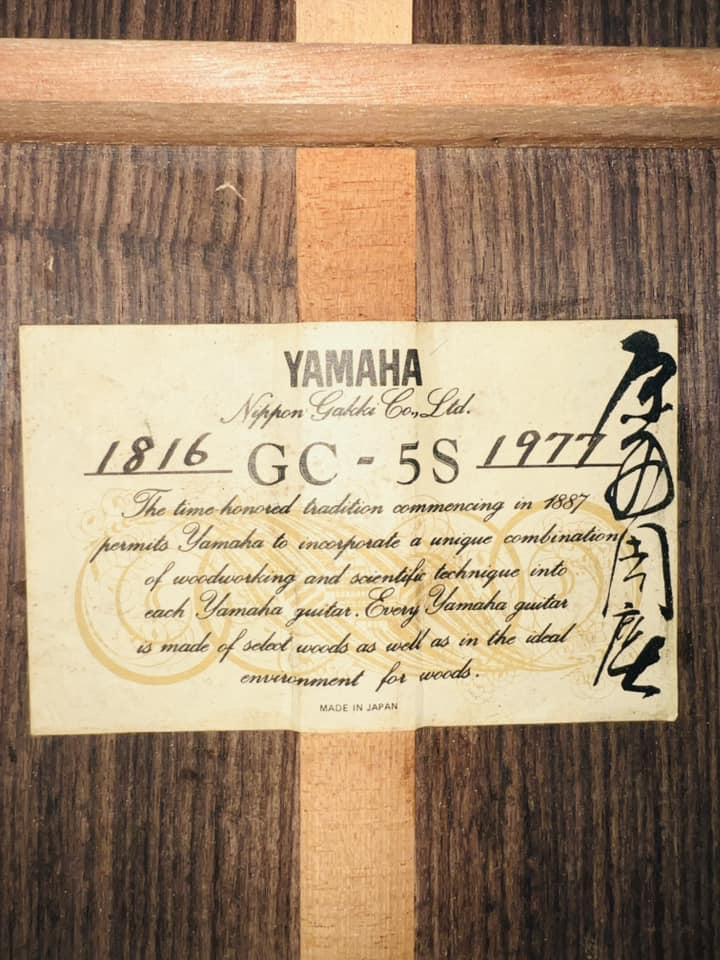 YAMAHA
Nippon Gakki Co., Ltd.
1816 GC-5S 1977
The time-honored tradition commencing in 1887
permits Yamaha to incorporate a unique combination
of woodworking and scientific technique into
each Yamaha guitar. Every Yamaha guitar
is made of select woods as well as in the ideal
environment for woods.
MADE IN JAPAN
原
周